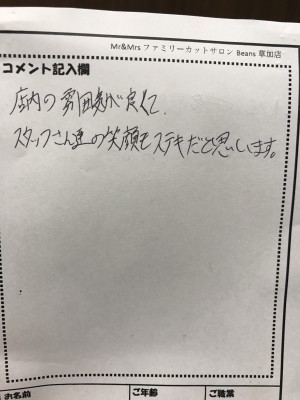 Mr&Mrs ファミリーカットサロン Beans 草加店
コメント記入欄
店内の雰囲気が良くて、
スタッフさん達の笑顔もステキだと思います。
お名前 ご年齢 ご職業